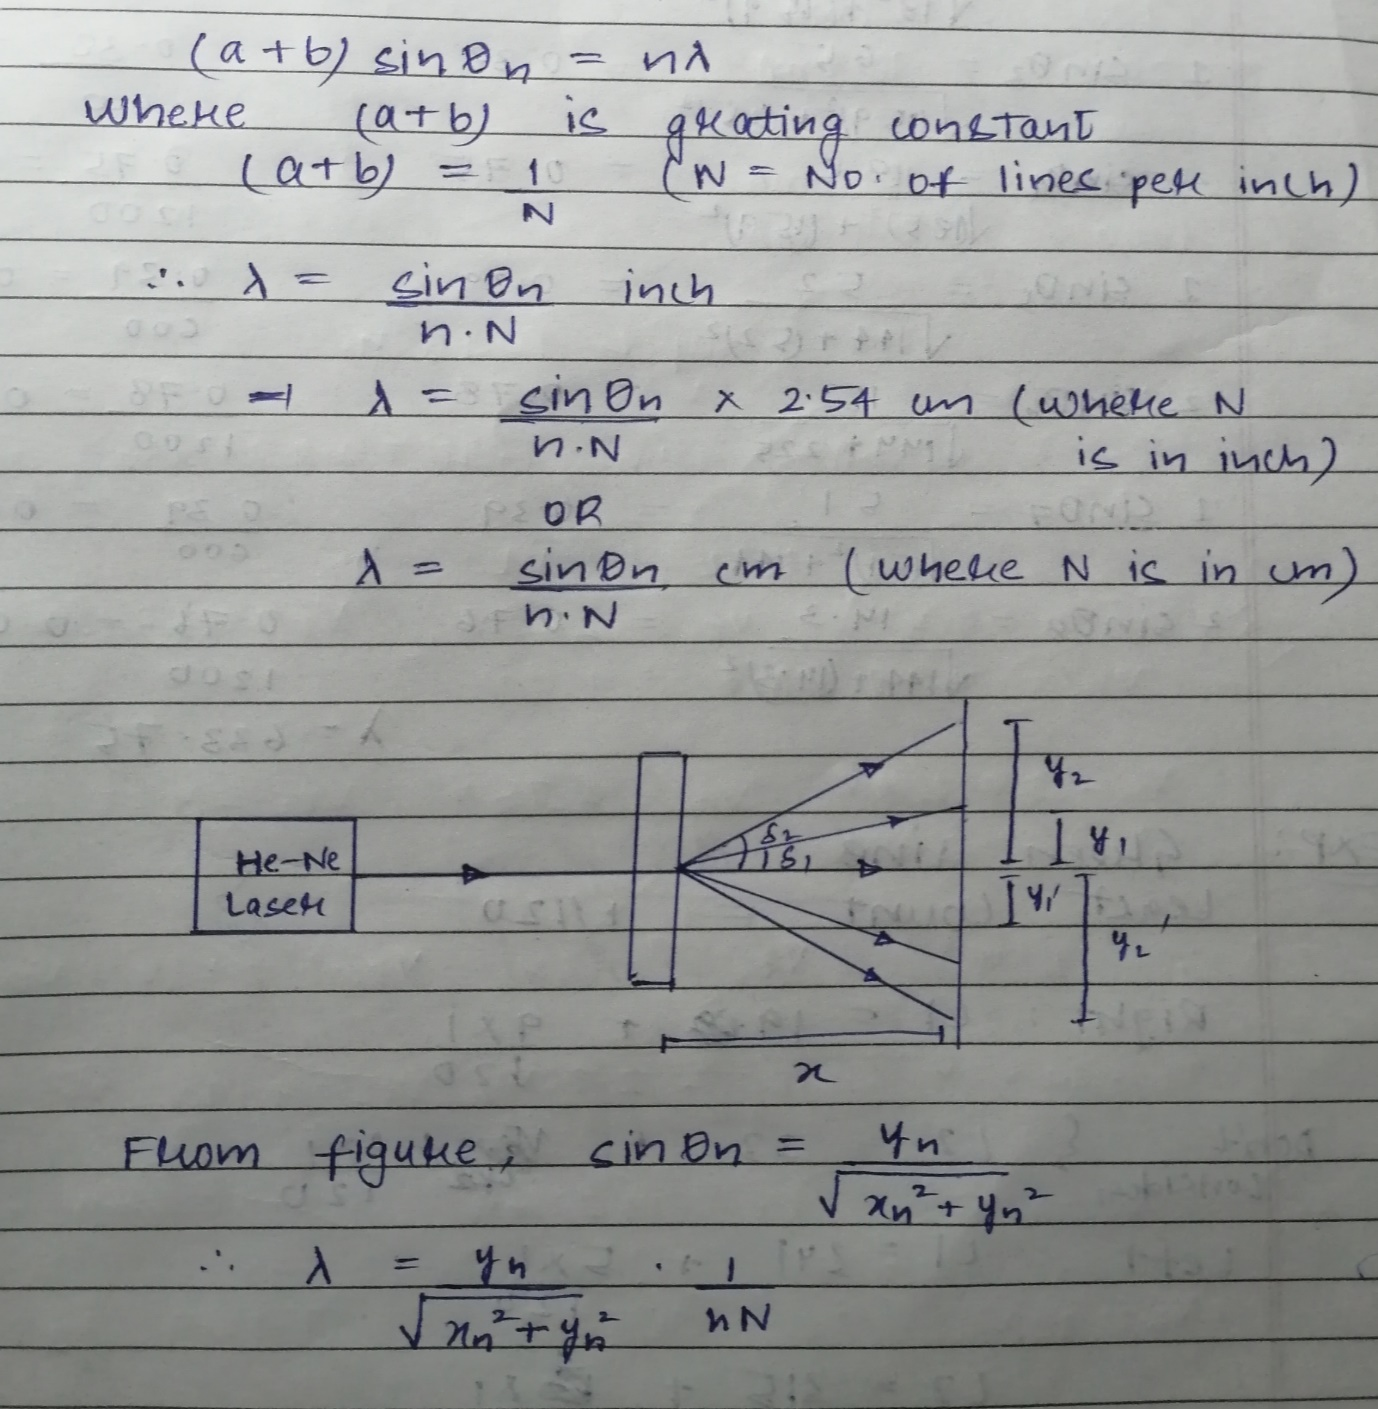 (a+b) sin θn = nλ
where (a+b) is grating constant
(a+b) = 1/N (N = No. of lines per inch)
∴ λ = sin θn / n.N inch
⇒ λ = sin θn / n.N × 2.54 cm (where N
is in inch)
OR
λ = sin θn / n.N cm (where N is in cm)
He-Ne
Laser
δ2
δ1
y2
y1
y1'
y2'
x
From figure, sin θn = yn / √xn²+yn²
∴ λ = yn / √xn²+yn² . 1/nN